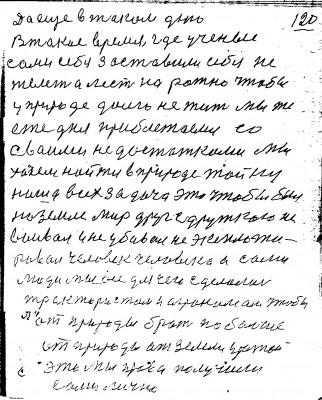 Да еще в таком деле 120
В такое время, где ученые
сами себя заставили себя не
на ротно чтобы
у природе долго не жит мы же
сте дня приблетаем со
своими недостатками мы
хотем найти в природе тайну
наша всех задача это чтобы был
на земле мир друг с дружкою не
воивал и не убивал не
человек человека а сами
люди мы все для чего сделали
трактористом и агрономам чтобы
от природы брат по больше
от природы от земли
это мы получили
сами лично